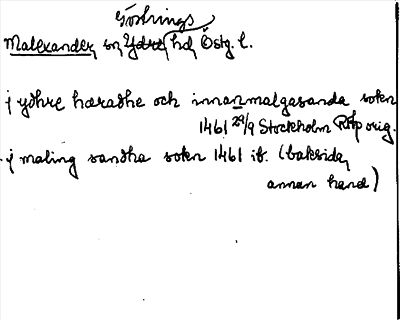 Göstrings
Malexander sn Ydre hd Östg. l.
j ydhre hæradhe och innanmalgasanda sokn
1461 29/9 Stockholm RAp orig.
j maling sandha sokn 1461 ib. (baksida,
annan hand)